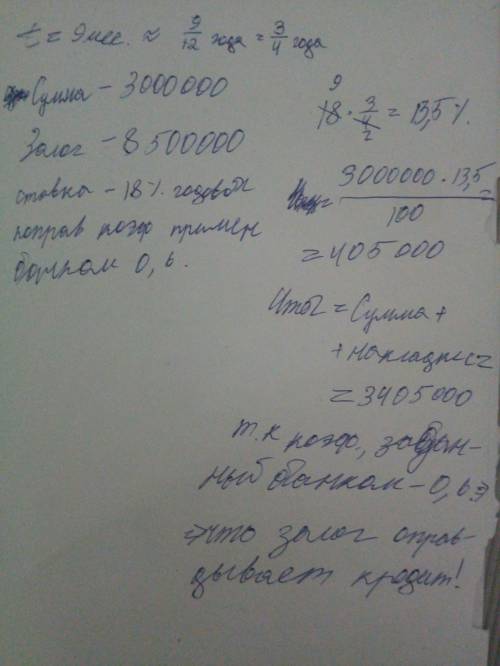 t = 9 мес. ≈ 9/12 года = 3/4 года
Сумма – 3000000
Залог – 8500000
ставка – 18 % годовой
поправ коэф примен
банком 0,6.
9
18 · 3/4 2 = 13,5 %
= 3000000 · 13,5 / 100
= 405000
Итог = Сумма +
+ накладные =
= 3405000
т.к коэф., задан-
ный банком – 0,6 ⇒
⇒ что залог оправ-
дывает кредит!